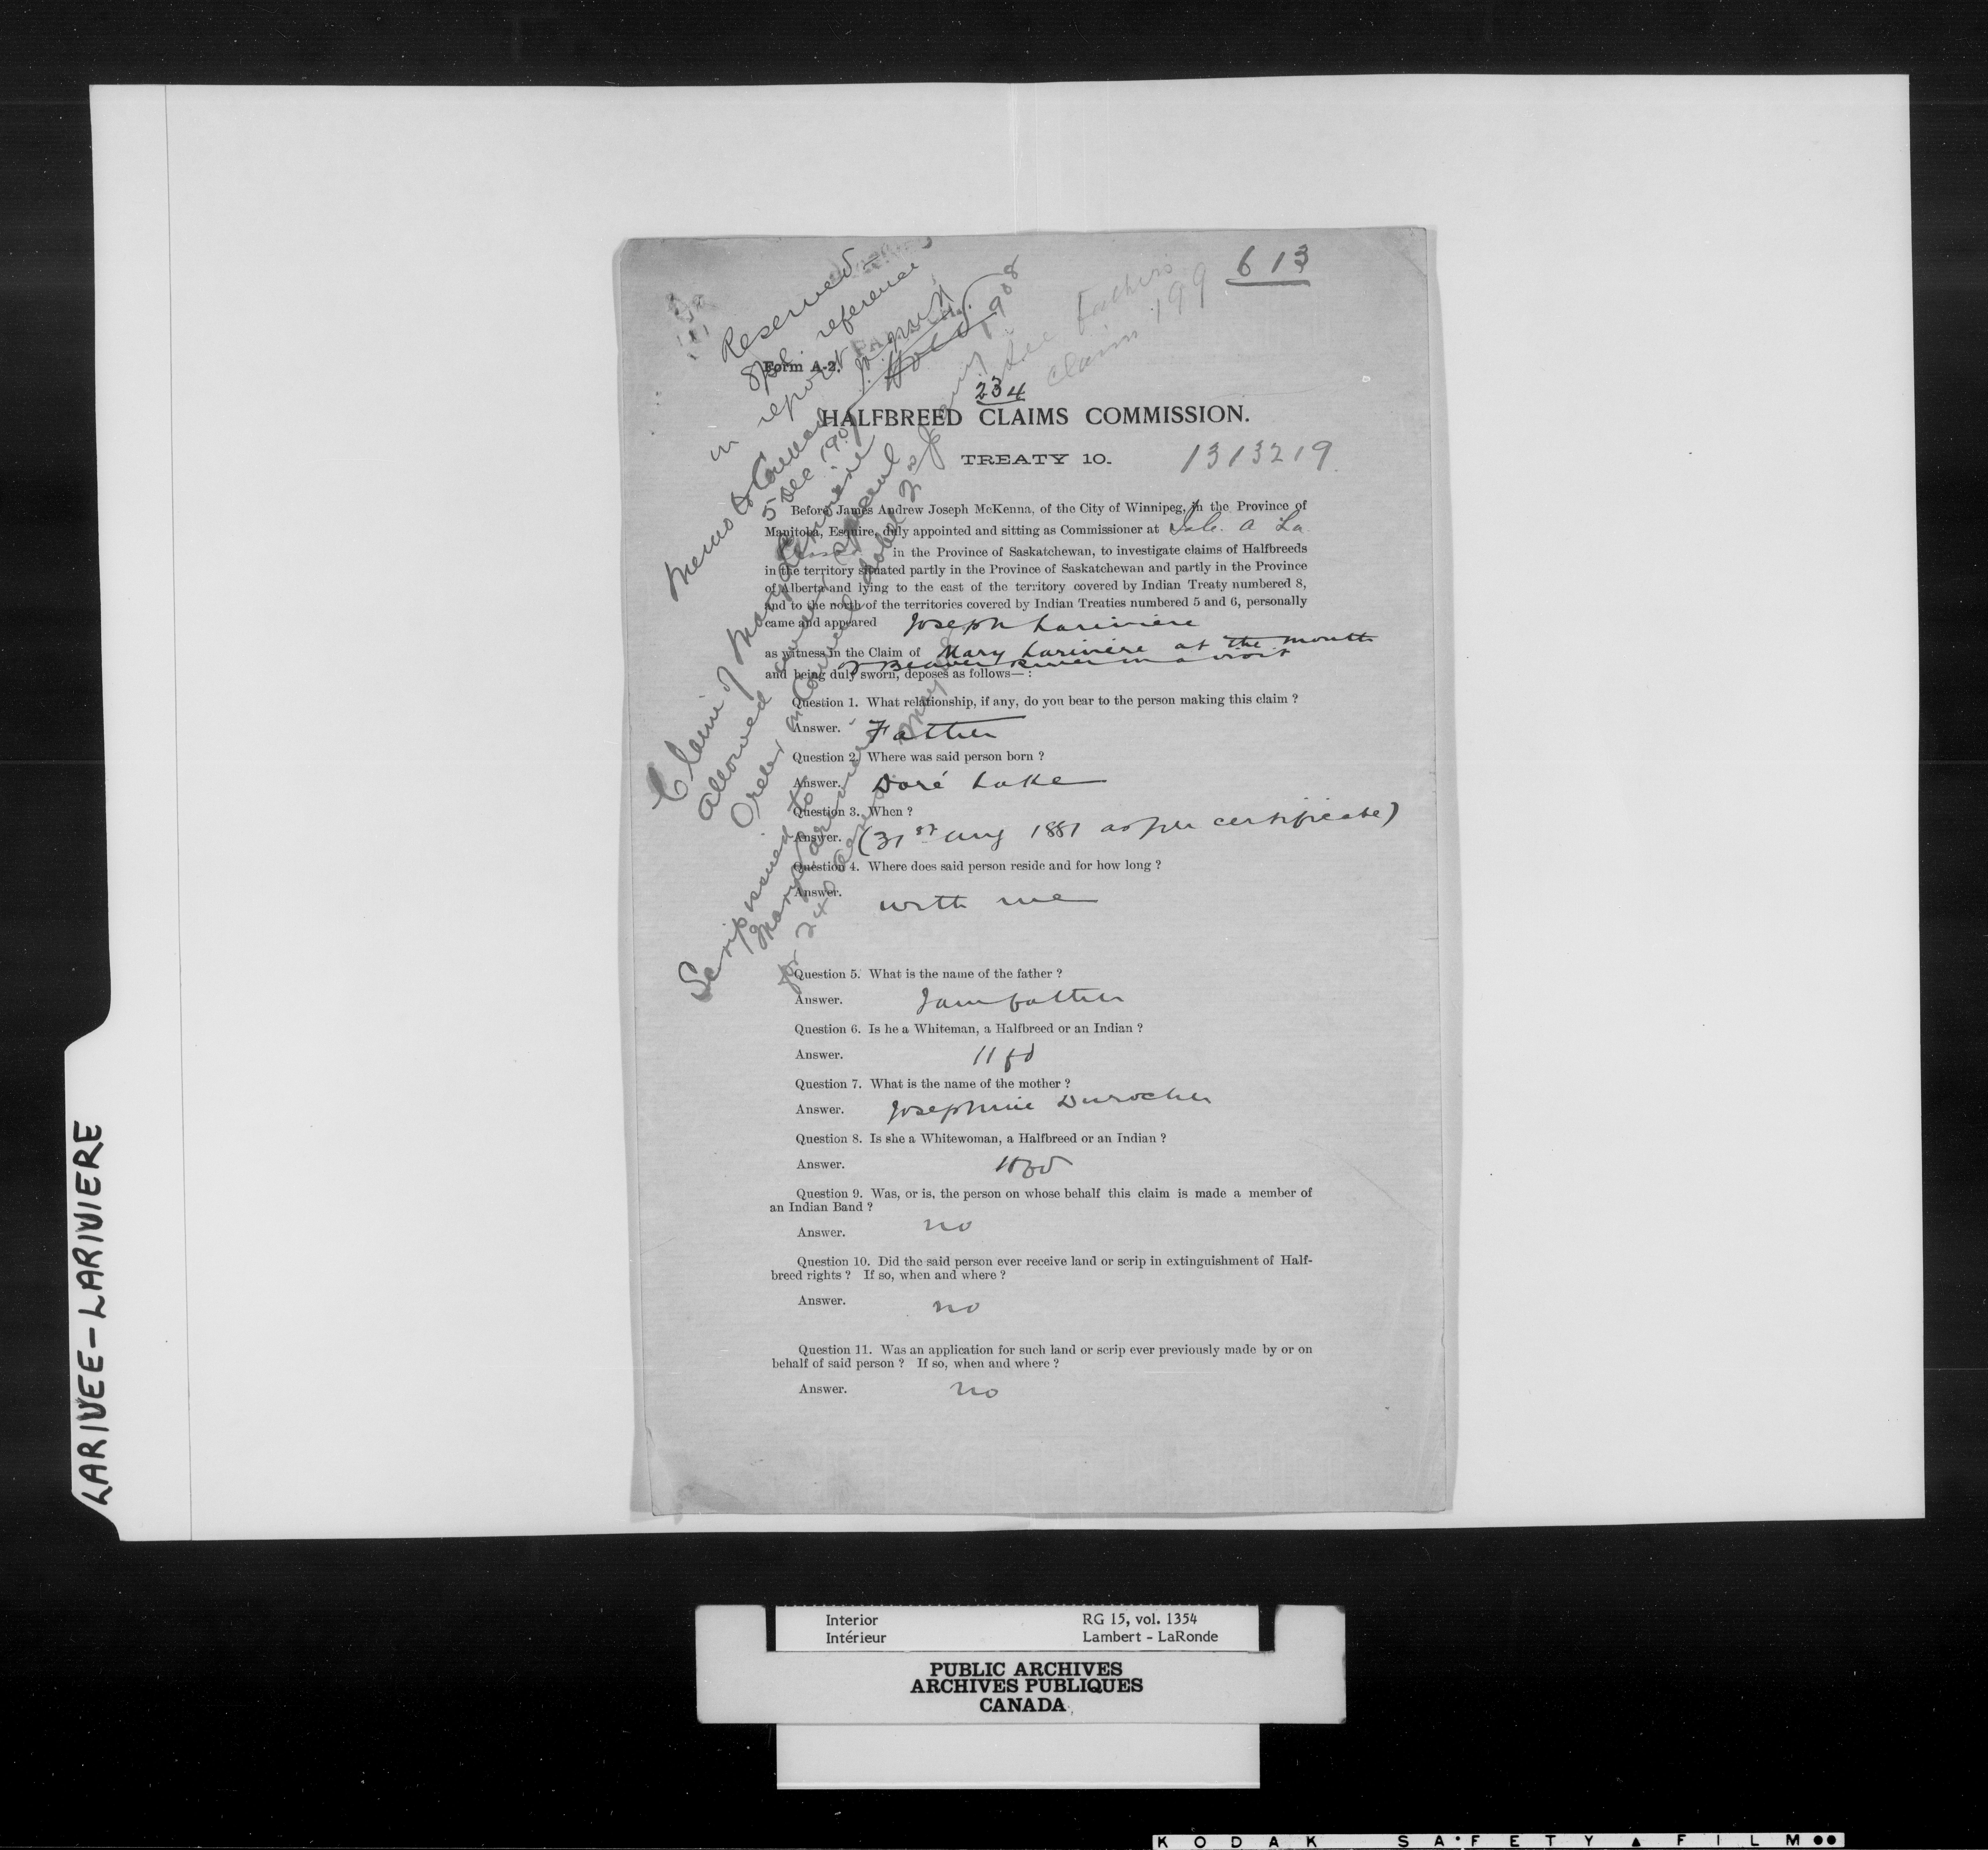 613
Reserved
Spl. reference
in report
Form A-2.
See Father's
claim 199
234
HALFBREED CLAIMS COMMISSION.
TREATY 10.
1313219
Memo to Council
5 Dec 1907
Claim of Mary Lariviere
allowed under special
Order in Council dated 2nd Jany 1908
Scrip issued to
Mary Lariviere
for 240 acres
Before James Andrew Joseph McKenna, of the City of Winnipeg, in the Province of
Manitoba, Esquire, duly appointed and sitting as Commissioner at Isle. a La.
Crosse in the Province of Saskatchewan, to investigate claims of Halfbreeds
in the territory situated partly in the Province of Saskatchewan and partly in the Province
of Alberta and lying to the east of the territory covered by Indian Treaty numbered 8,
and to the north of the territories covered by Indian Treaties numbered 5 and 6, personally
came and appeared Joseph Lariviere
as witness in the Claim of Mary Lariviere at the mouth
of Beaver River on a visit
and being duly sworn, deposes as follows— :
Question 1. What relationship, if any, do you bear to the person making this claim ?
Answer. Father
Question 2. Where was said person born ?
Answer. Doré Lake
Question 3. When ?
Answer. (31st Aug 1881 as per certificate)
Question 4. Where does said person reside and for how long ?
Answer.
with me
Question 5. What is the name of the father ?
Answer. I am father
Question 6. Is he a Whiteman, a Halfbreed or an Indian ?
Answer. Hfd
Question 7. What is the name of the mother ?
Answer. Josephine Durocher
Question 8. Is she a Whitewoman, a Halfbreed or an Indian ?
Answer. Hfd
Question 9. Was, or is, the person on whose behalf this claim is made a member of
an Indian Band ?
Answer. no
Question 10. Did the said person ever receive land or scrip in extinguishment of Half-
breed rights ? If so, when and where ?
Answer. no
Question 11. Was an application for such land or scrip ever previously made by or on
behalf of said person ? If so, when and where ?
Answer. no
LARIVEE-LARIVIERE
Interior RG 15, vol. 1354
Intérieur Lambert - LaRonde
PUBLIC ARCHIVES
ARCHIVES PUBLIQUES
CANADA
KODAK SAFETY FILM